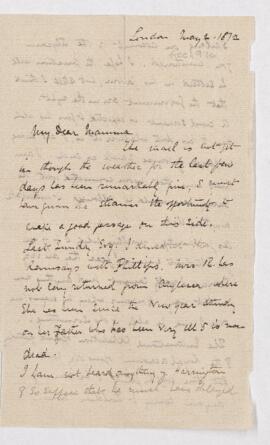 London May 2. 1872
My Dear Mamma
The mail is not yet in
though the weather for the last few
days has been remarkably fine, & must
have given the steamer the opportunity to
make a good passage on this side.
Last Sunday Evg. I dined
with Phillips. Mrs P. has
not long returned from where
she has been since the New year attending
on her Father who has been very ill & is now
dead.
I have not heard anything of Harrington
& so suppose that he must have delayed